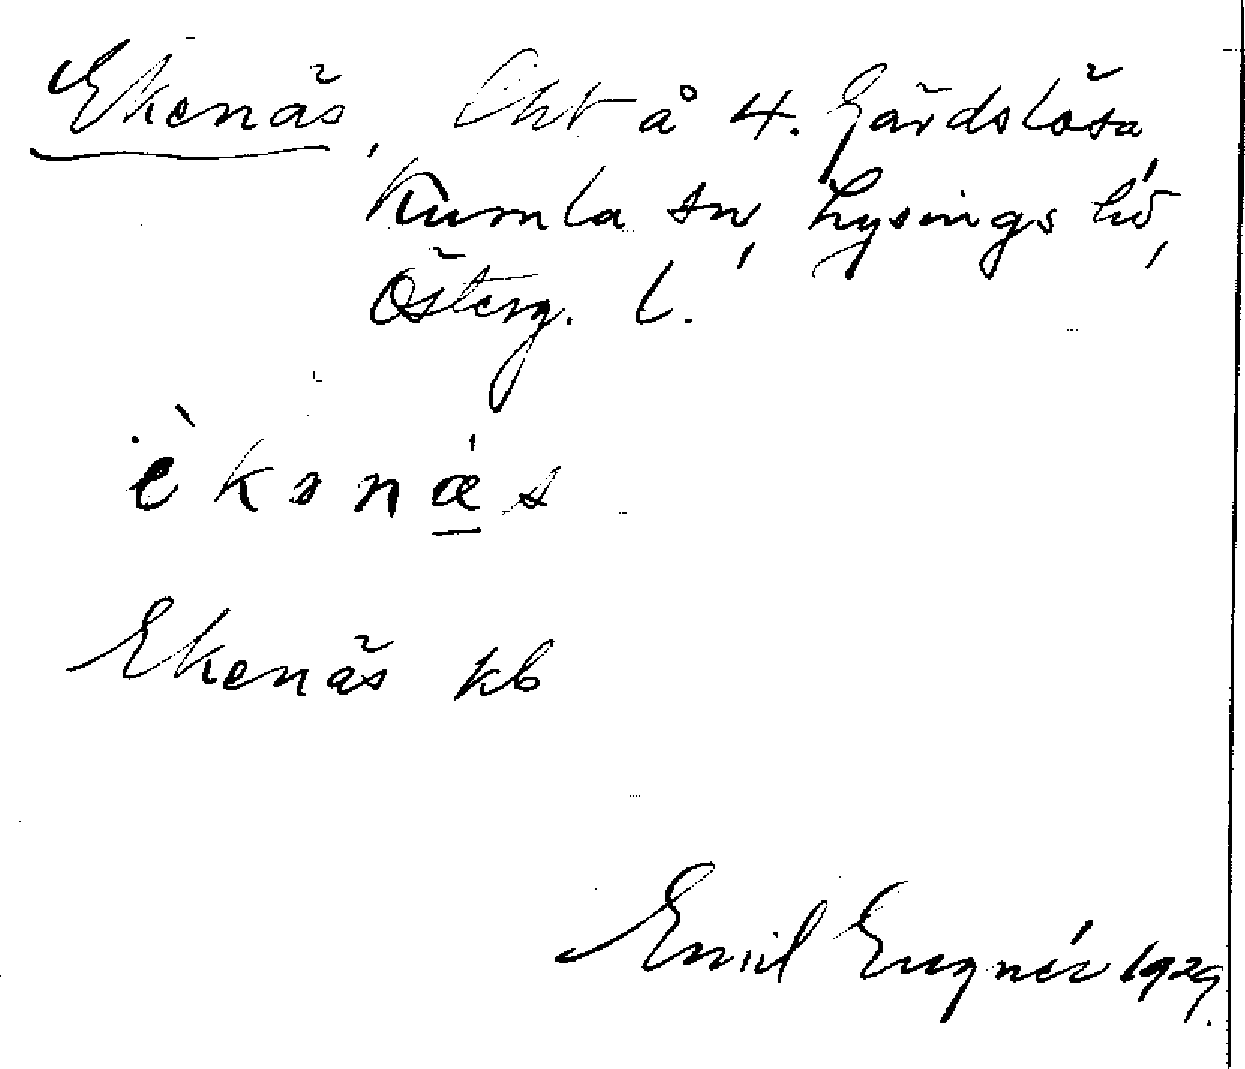 Ekenäs, Lht å 4. Gärdslösa
Kumla sn, Lysings hd,
Österg. l.
èkənǽs
Ekenäs kb
Emil Engnér 1929.